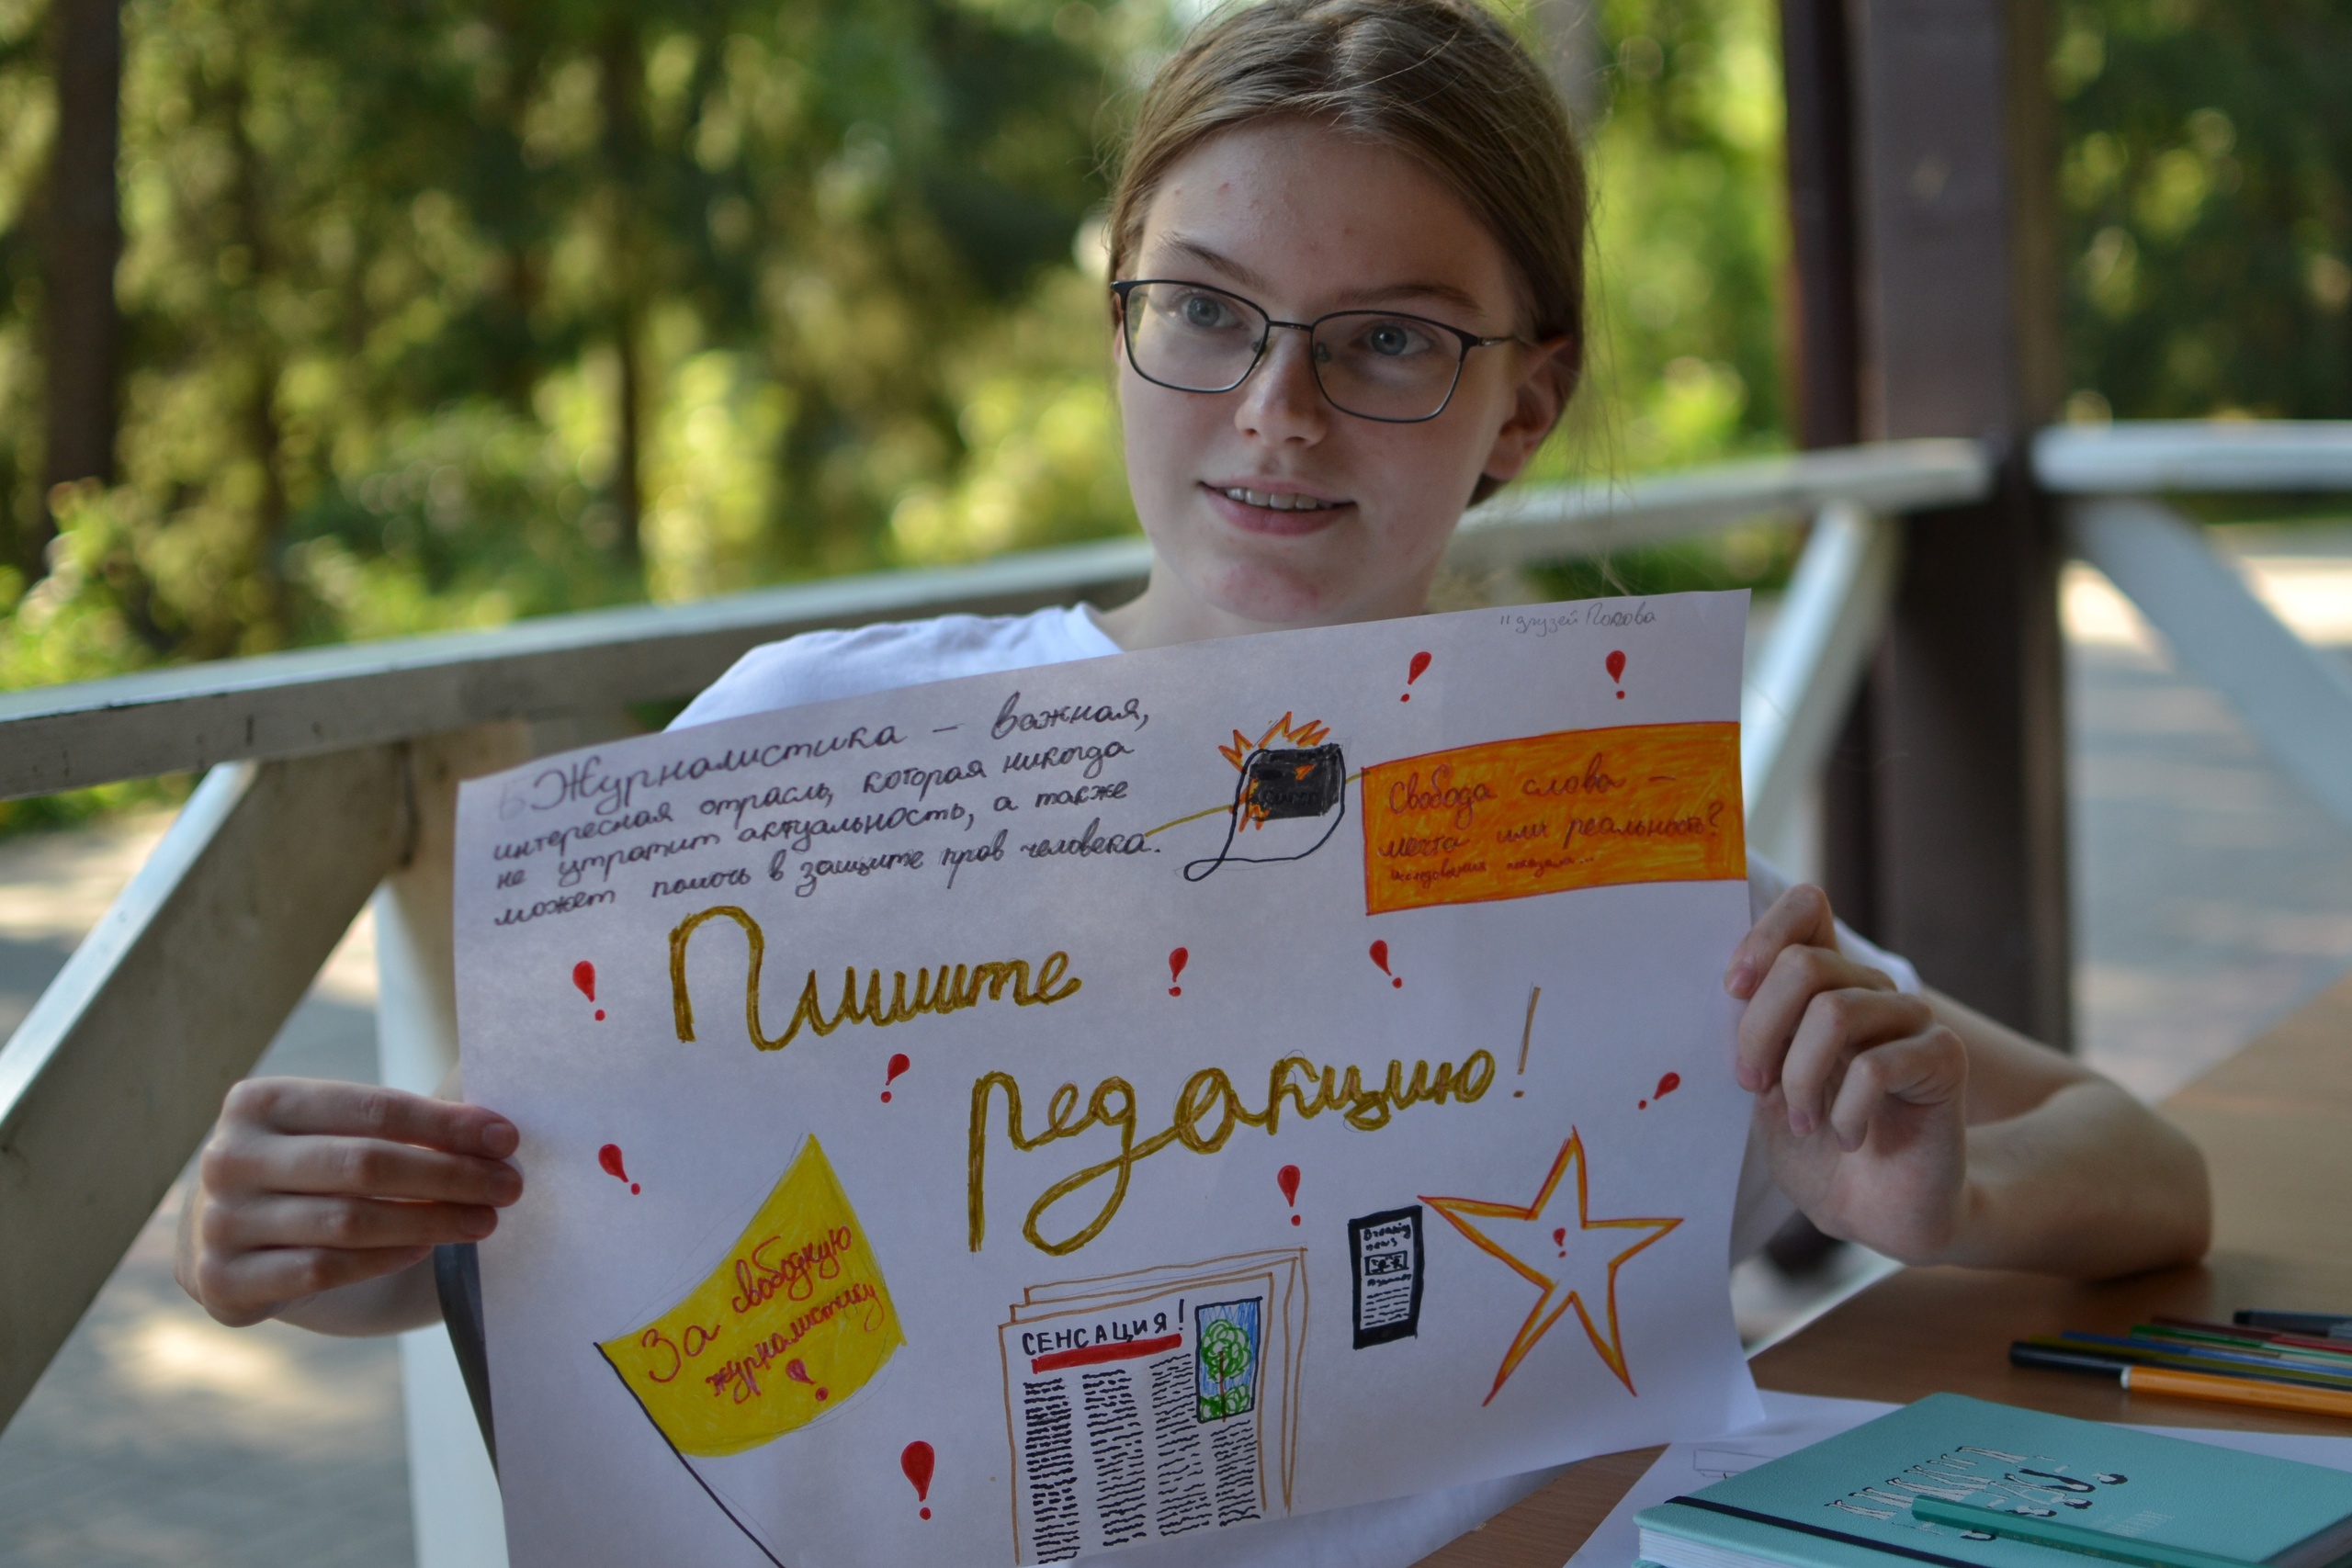 11 друзей Попова
Журналистика – важная,
интересная отрасль, которая никогда
не утратит актуальность, а также
может помочь в защите прав человека.
Свобода слова –
мечта или реальность?
исследования показали...
Пишите
редакцию!
За свободную
журналистику
!
СЕНСАЦИЯ!
Breaking
news